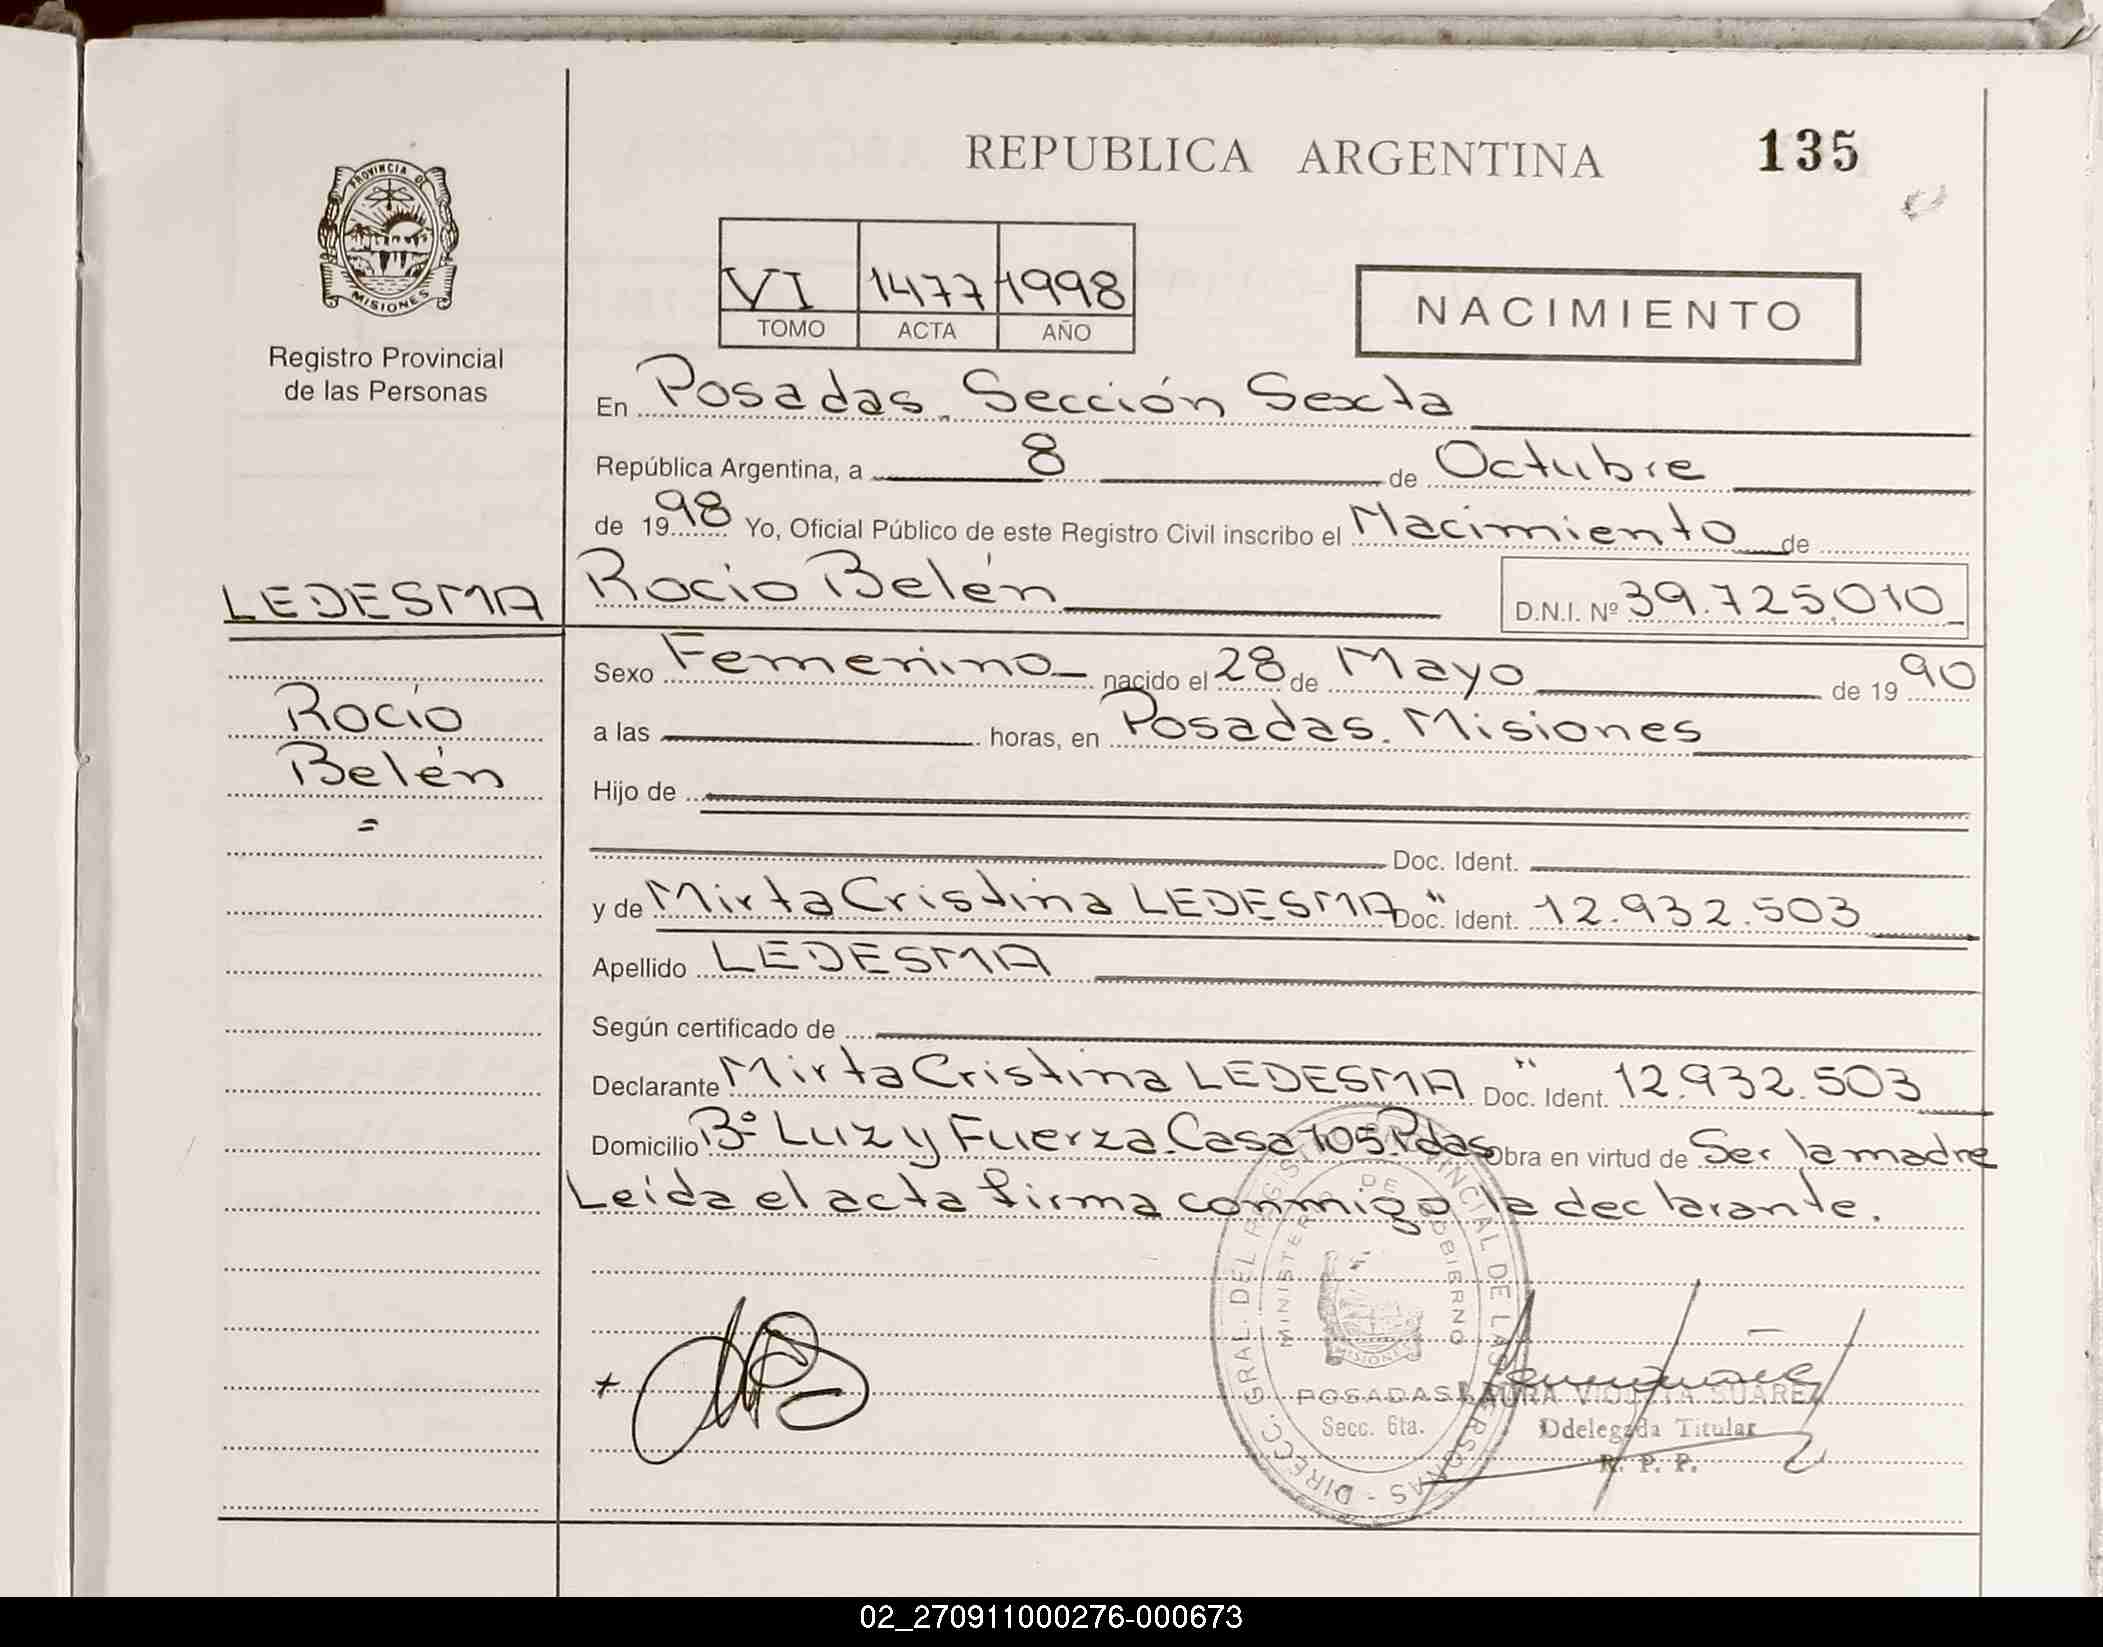 REPUBLICA ARGENTINA 135
PROVINCIA DE
MISIONES
Registro Provincial
de las Personas
VI 1477 1998
TOMO ACTA AÑO
NACIMIENTO
En Posadas. Sección Sexta
República Argentina, a 8 de Octubre
de 1998 Yo, Oficial Público de este Registro Civil inscribo el Nacimiento de
LEDESMA Rocio Belén D.N.I. Nº 39.725.010
Rocío
Belén
=
Sexo Femenino nacido el 28 de Mayo de 1990
a las horas, en Posadas. Misiones
Hijo de
Doc. Ident.
y de Mirta Cristina LEDESMA " Doc. Ident. 12.932.503
Apellido LEDESMA
Según certificado de
Declarante Mirta Cristina LEDESMA " Doc. Ident. 12.932.503
Domicilio Bº Luz y Fuerza. Casa 105. Pdas Obra en virtud de Ser la madre
Leída el acta firma conmigo la declarante.
DIRECC. GRAL. DEL REGISTRO PROVINCIAL DE LAS PERSONAS
MINISTERIO DE GOBIERNO
MISIONES
POSADAS
Secc. 6ta.
LAURA VIOLETA SUAREZ
Ddelegada Titular
R. P. P.
02_270911000276-000673